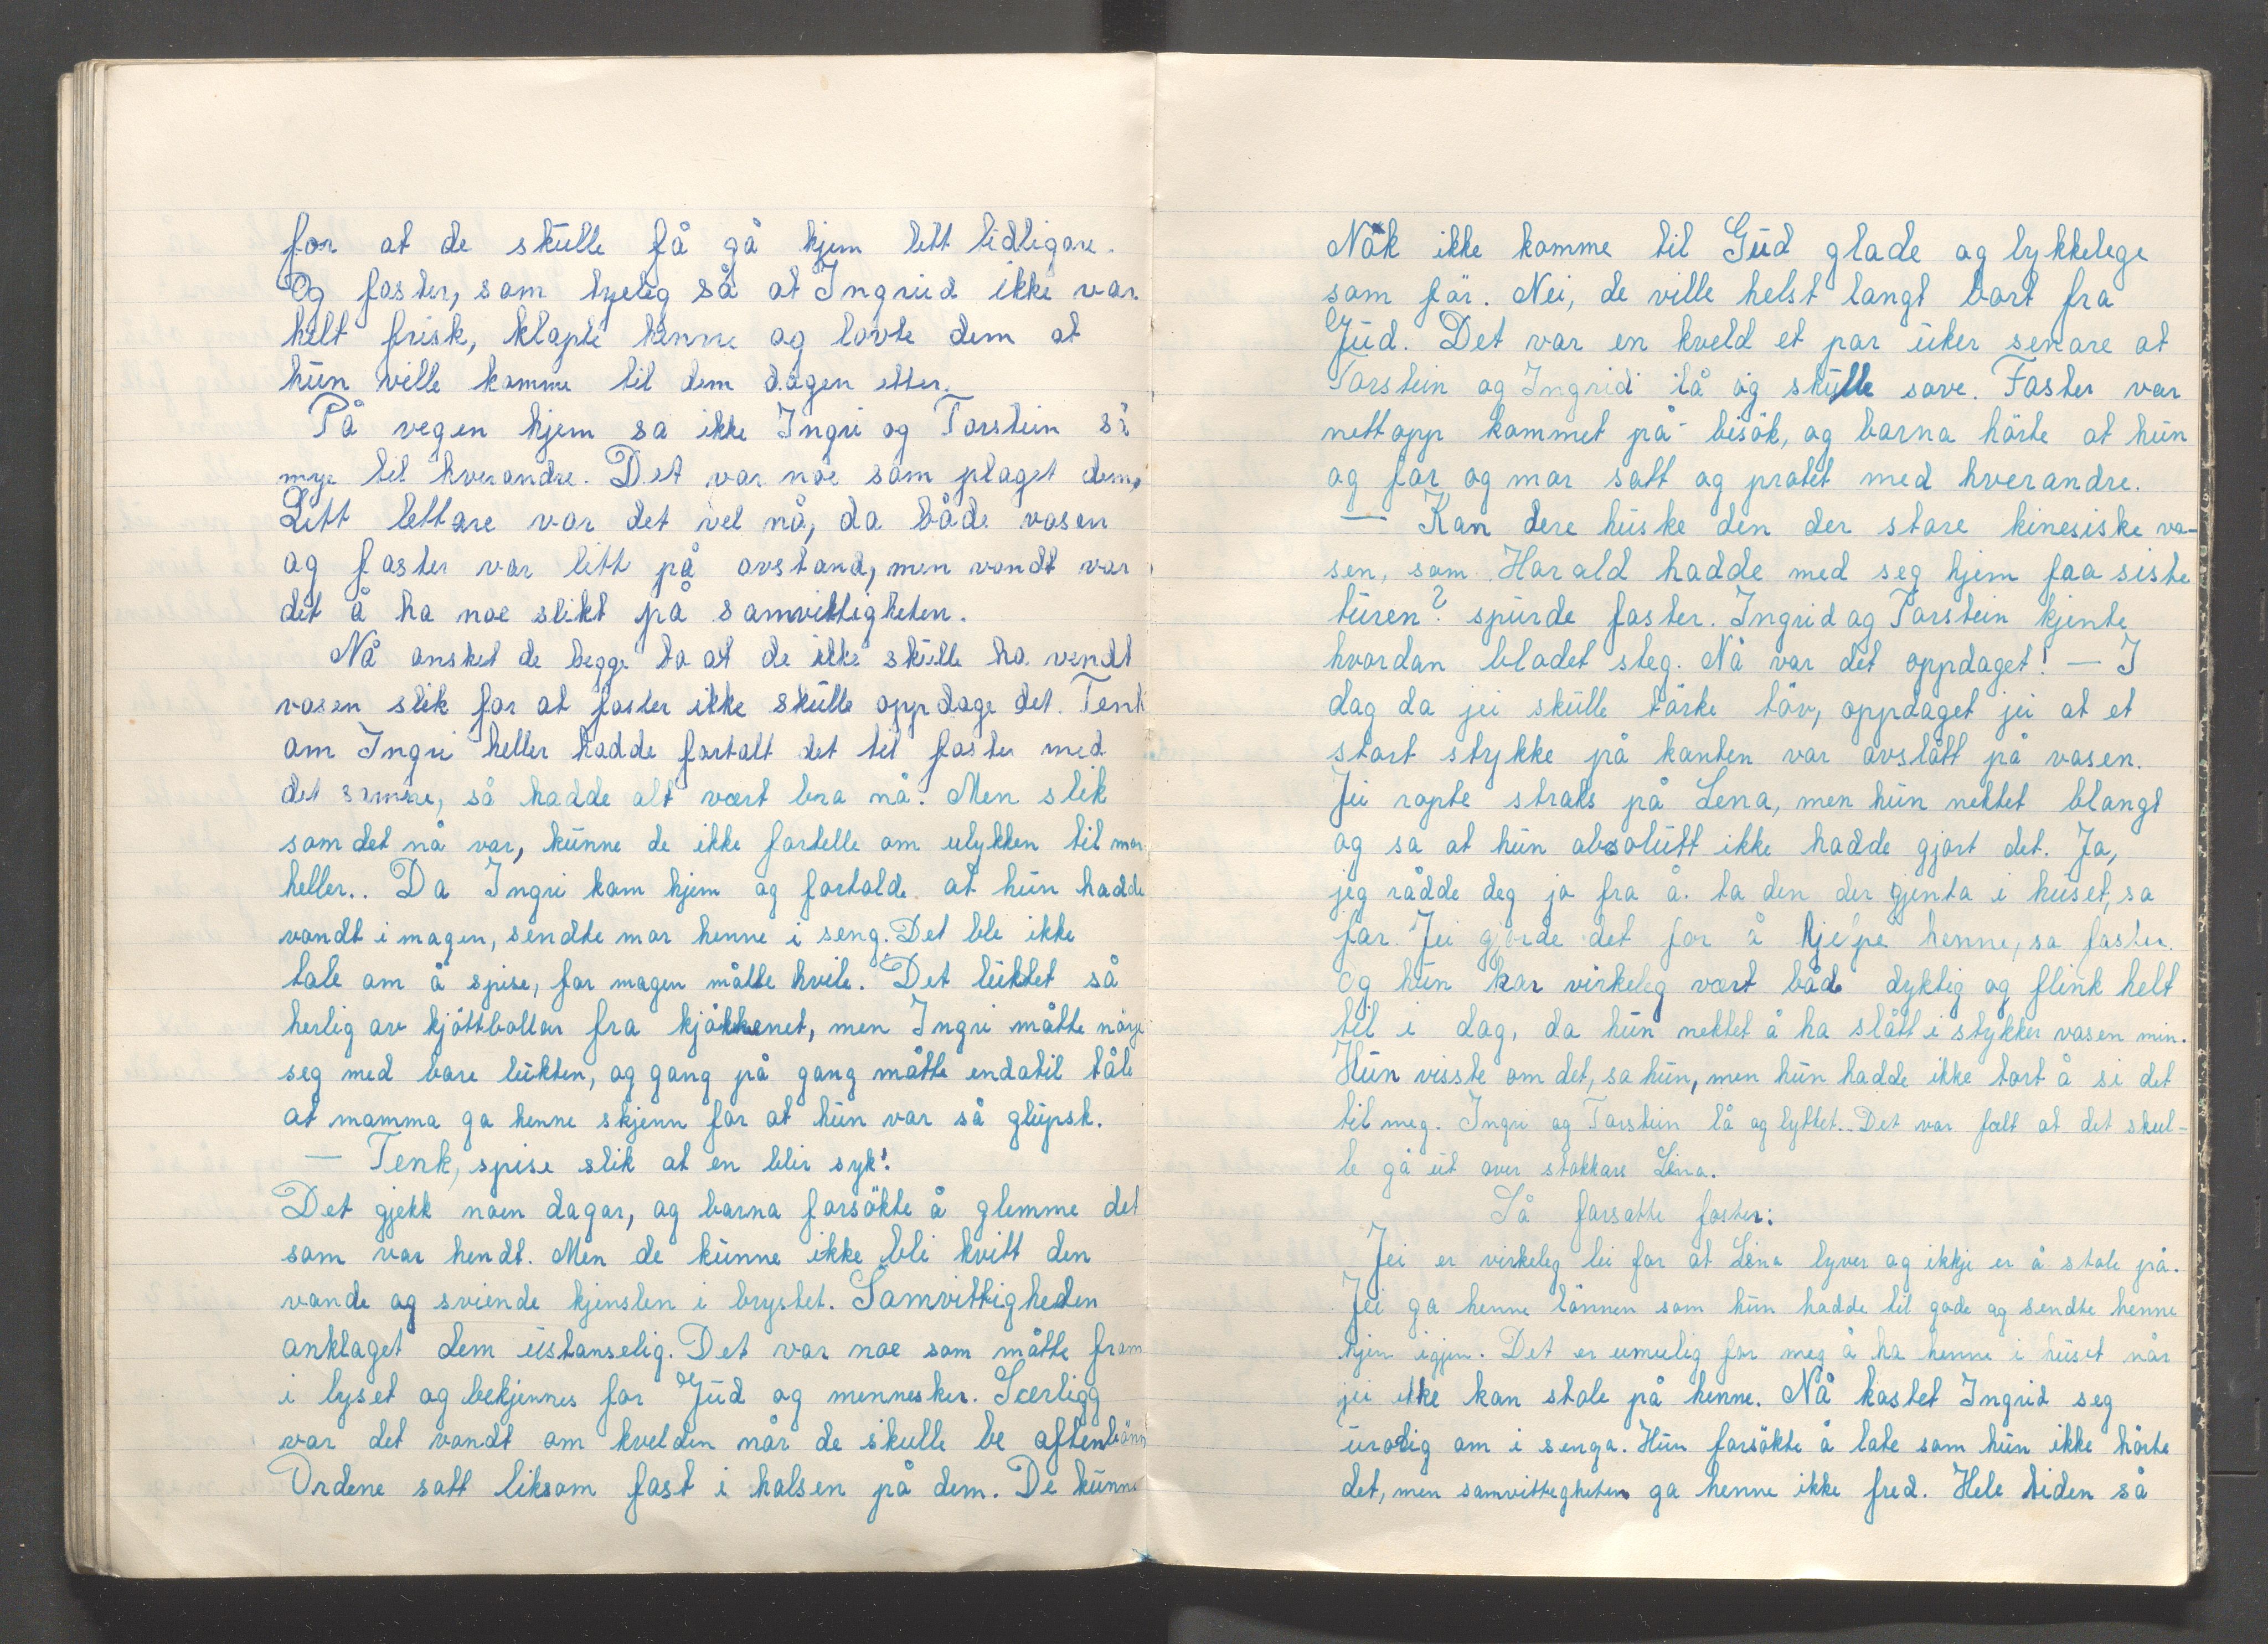 for at de skulle få gå hjem litt tidligare.
Og faster, som tyeleg så at Ingrid ikke var
helt frisk, klapte henne og lovte dem at
hun ville komme til dem dagen etter.
På vegen hjem sa ikke Ingri og Torstein så
mye til hverandre. Det var noe som plaget dem,
Litt lettare var det vel nå, da både vasen
og faster var litt på avstand, men vondt var
det å ha noe slikt på samvittigheten.
Nå ønsket de begge to at de ikke skulle ha vendt
vasen slik for at faster ikke skulle oppdage det. Tenk
om Ingri heller hadde fortalt det til faster med
det samme, så hadde alt vært bra nå. Men slik
som det nå var, kunne de ikke fortelle om ulykken til mor
heller.. Da Ingri kom hjem og fortalde at hun hadde
vondt i magen, sendte mor henne i seng. Det ble ikke
tale om å spise, for magen måtte hvile. Det luktet så
herlig av kjöttbollar fra kjökkenet, men Ingri måtte nöye
seg med bare lukten, og gang på gang måtte endatil tåle
at mamma ga henne skjenn for at hun var så glupsk.
— Tenk, spise slik at en blir syk!
Det gjekk noen dagar, og barna forsökte å glemme det
som var hendt. Men de kunne ikke bli kvitt den
vonde og sviende kjenslen i brystet. Samvittigheden
anklaget dem ustanselig. Det var noe som måtte fram
i lyset og bekjennes for Gud og mennesker. Særligg
var det vondt om kvelden når de skulle be aftenbönn
Ordene satt liksom fast i halsen på dem. De kunne
Nok ikke komme til Gud glade og lykkelege
som för. Nei, de ville helst langt bort fra
Gud. Det var en kveld et par uker senare at
Torstein og Ingrid lå og skulle sove. Faster var
nettopp kommet på besök, og barna hörte at hun
og far og mor satt og pratet med hverandre.
— Kan dere huske den der store kinesiske va-
sen, som Harald hadde med seg hjem faa siste
turen? spurde faster. Ingrid og Torstein kjente
hvordan blodet steg. Nå var det oppdaget! — I
dag da jei skulle törke töv, oppdaget jei at et
stort stykke på kanten var avslått på vasen.
Jei ropte straks på Lena, men hun nektet blangt
og sa at hun absolutt ikke hadde gjort det. Ja,
jeg rådde deg jo fra å. ta den der gjenta i huset, sa
far. Jei gjorde det for å hjelpe henne, sa faster.
Og hun har virkeleg vært både dyktig og flink helt
til i dag, da hun nektet å ha slått i stykker vasen min.
Hun visste om det, sa hun, men hun hadde ikke tort å si det
til meg. Ingri og Torstein lå og lyttet.. Det var fælt at det skul-
le gå ut over stakkars Lena.
Så forsatte faster:
Jei er virkeleg lei for at Lena lyver og ikkje er å stole på.
Jei ga henne lönnen som hun hadde til gode og sendte henne
hjen igjen. Det er umulig for meg å ha henne i huset når
jei ikke kan stole på henne. Nå kastet Ingrid seg
urolig om i senga. Hun forsökte å late som hun ikke hörte
det, men samvittegheten ga henne ikke fred. Hele tiden så